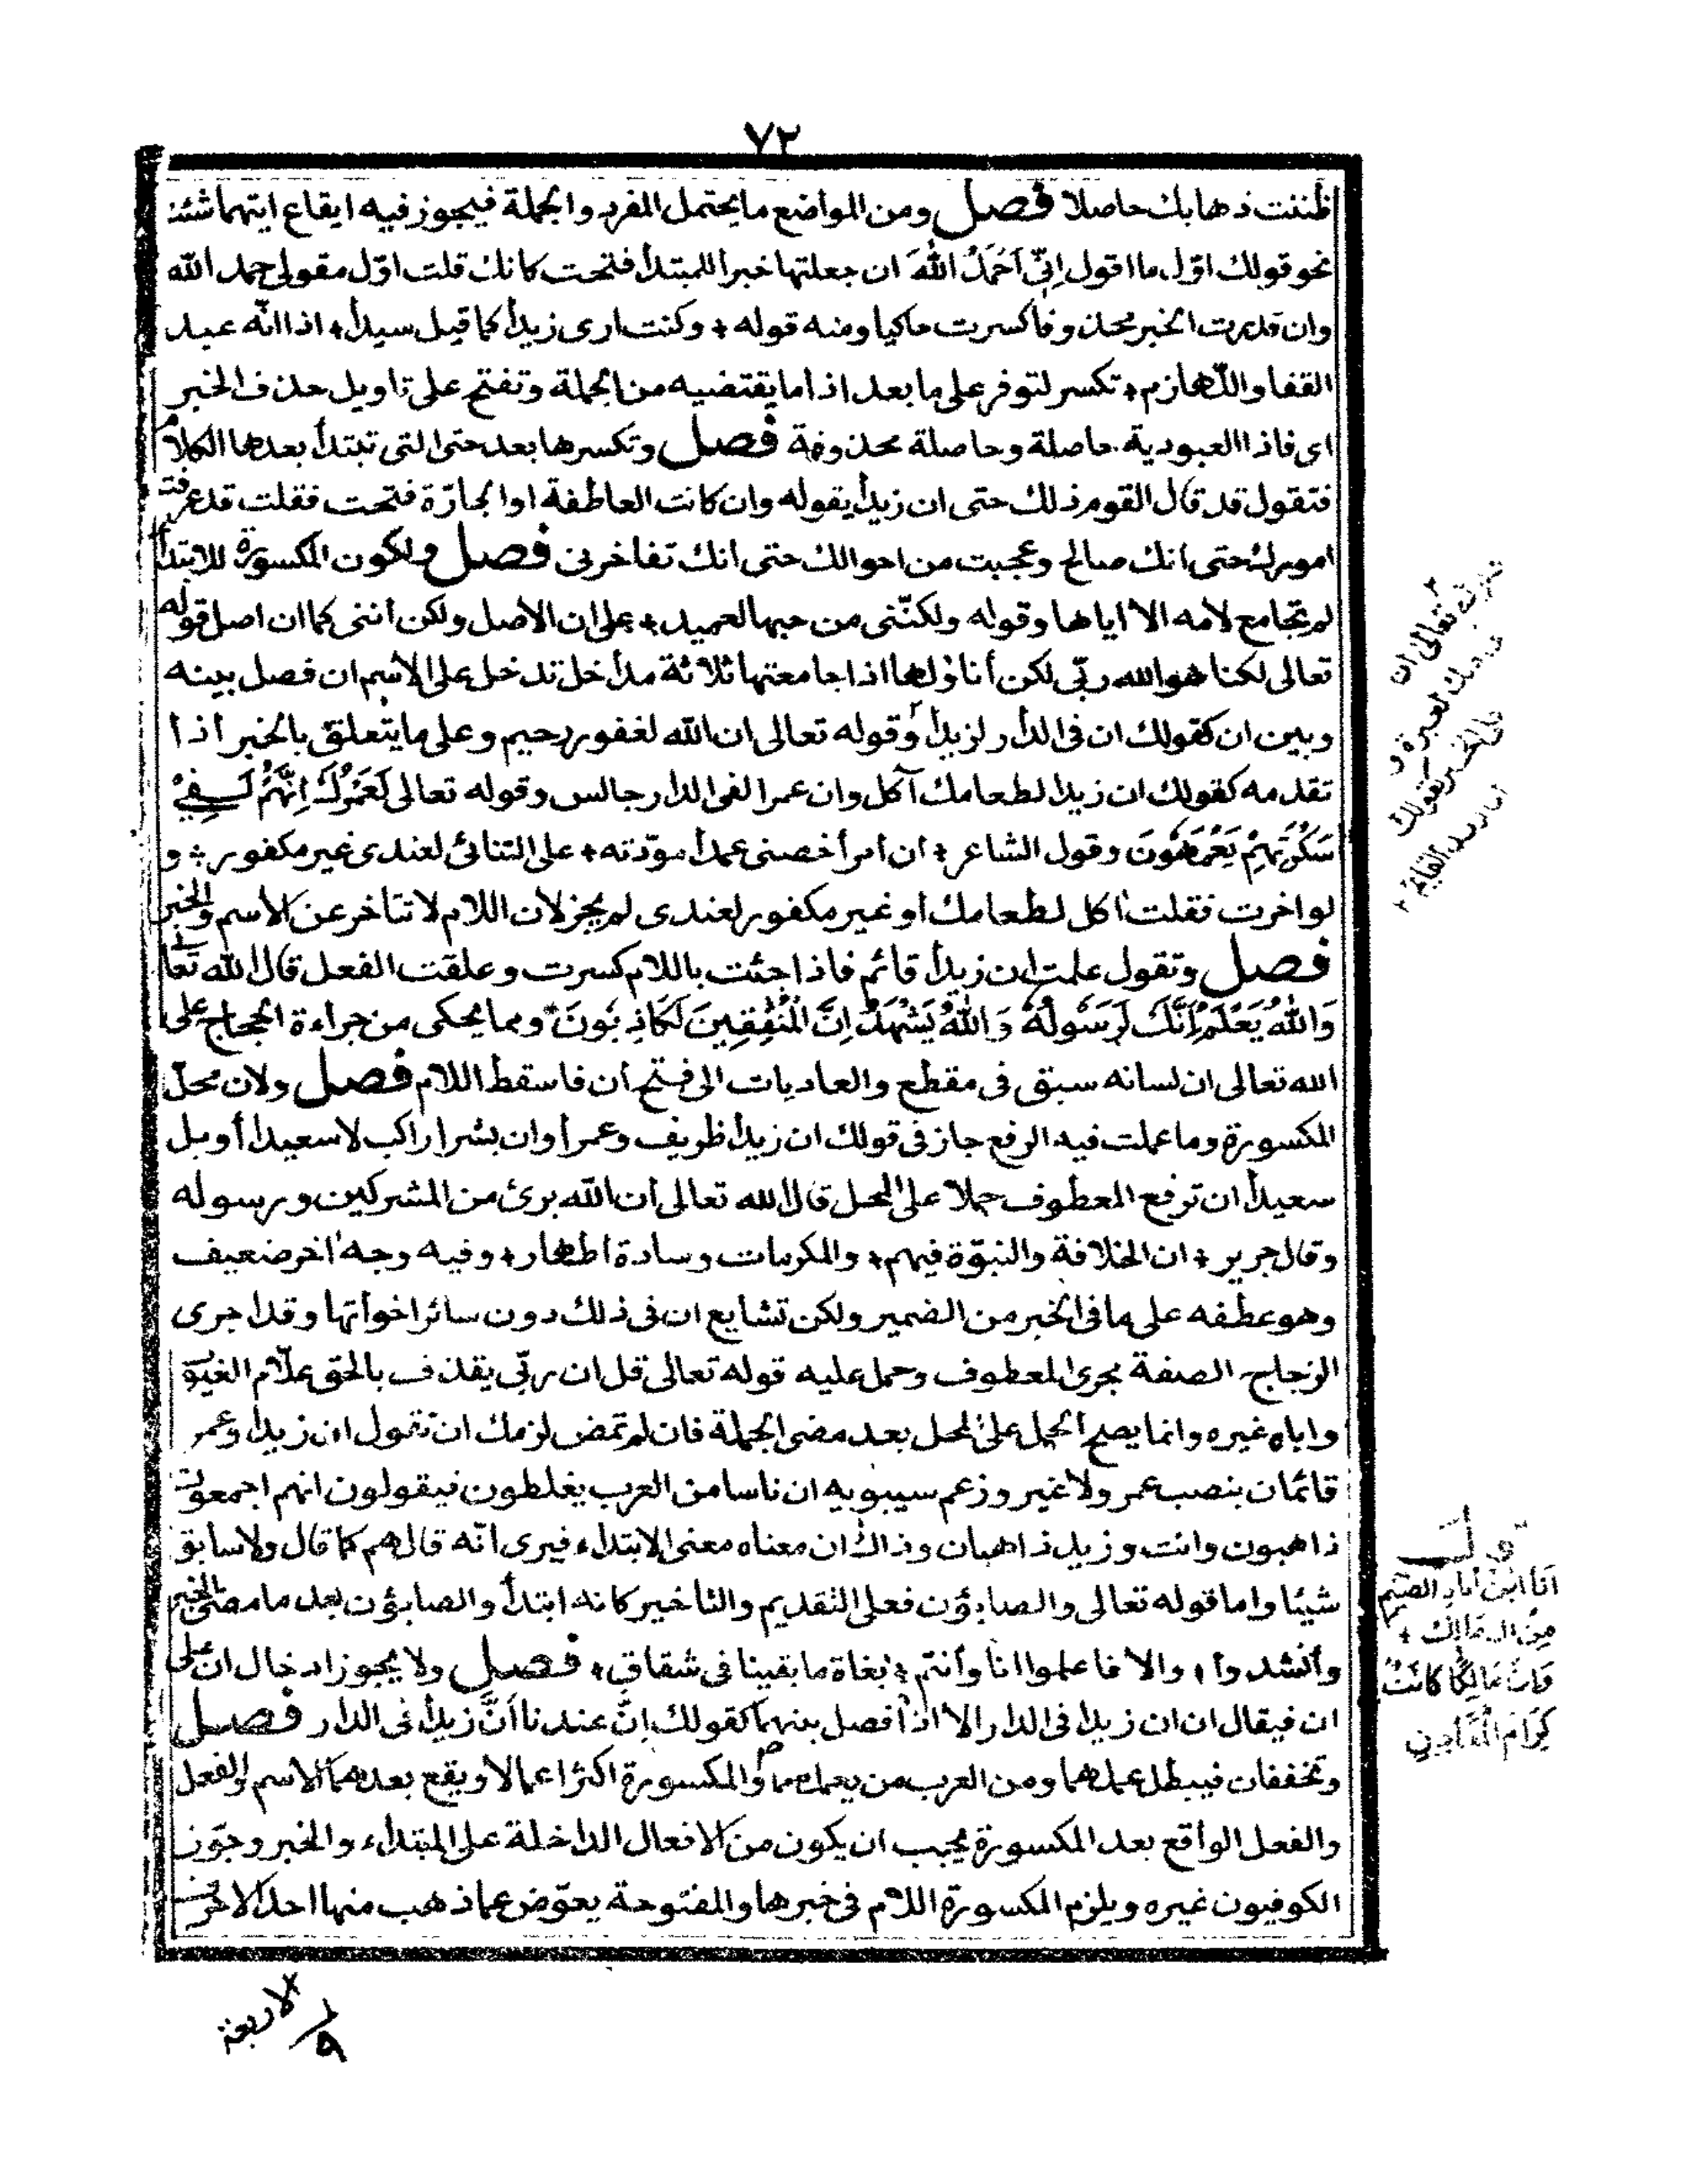 ٧٢
ظننت ذهابك حاصلا فصل ومن المواضع ما يحتمل المفرد والجملة فيجوز فيه ايقاع ايتهما شئت
نحو قولك اوّل ما اقول اِنّي اَحْمَدُ اللهَ ان جعلتها خبرا للمبتدأ فتحت كانك قلت اوّل مقولي حمد الله
وان قدرت الخبر محذوفا كسرت حاكيا ومنه قوله + وكنت ارى زيدا كما قيل سيدا + اذا انّه عبد
القفا واللّهازم + تكسر لتوفر على ما بعد اذا ما يقتضيه من الجملة وتفتح على تاويل حذف الخبر
اى فاذا العبودية حاصلة وحاصلة محذوفة فصل وتكسرها بعد حتى التى تبتدأ بعدها الكلام
فتقول قد قال القوم ذلك حتى ان زيدا يقوله وان كانت العاطفة او الجارّة فتحت فقلت قد عرفت
امورك حتى أنك صالح وعجبت من احوالك حتى أنك تفاخرنى فصل ولكون المكسورة للابتداء
لم تجامع لامه الا اياها وقوله ولكنّنى من حبها لعميد + على ان الاصل ولكن أننى كما ان اصل قوله
تعالى لكنا هو الله ربّي لكن أنا ولها اذا جامعتها ثلاثة مداخل تدخل على الأسم ان فصل بينه
وبين ان كقولك ان فى الدار لزيدا وقوله تعالى ان الله لغفور رحيم وعلى ما يتعلق بالخبر اذا
تقدمه كقولك ان زيدا لطعامك آكل وان عمرا لفى الدار جالس وقوله تعالى لَعَمْرُكَ اِنَّهُمْ لَفِيْ
سَكْرَتِهِمْ يَعْمَهُونَ وقول الشاعر + ان امرأ خصنى عمدا مودّته + على التنائى لعندى غير مكفور + و
لو اخرت فقلت أكل لطعامك او غير مكفور لعندى لم يجز لان اللام لا تتأخر عن الاسم والخبر
فصل وتقول علمت ان زيدا قائم فاذا جئت باللام كسرت وعلقت الفعل قال الله تعالى
وَاللهُ يَعْلَمُ اِنَّكَ لَرَسُولُهُ وَاللهُ يَشْهَدُ اِنَّ الْمُنٰفِقِينَ لَكَاذِبُونَ ومما يحكى من جراءة الحجاج على
الله تعالى ان لسانه سبق فى مقطع والعاديات الى فتح أن فاسقط اللام فصل ولان محلّ
المكسورة وما عملت فيه الرفع جاز فى قولك ان زيدا ظريف وعمرا وان بشرا راكب لا سعيدا أو بل
سعيدا ان ترفع المعطوف حملا على المحل قال الله تعالى أن الله برئ من المشركين ورسوله
وقال جرير + ان الخلافة والنبوّة فيهم + والمكرمات وسادة اطهار + وفيه وجه اخر ضعيف
وهو عطفه على ما فى الخبر من الضمير ولكن تشايع ان فى ذلك دون سائر اخواتها وقد اجرى
الزجاج الصفة مجرى المعطوف وحمل عليه قوله تعالى قل ان ربّي يقذف بالحق علّام الغيوب
واباه غيره وانما يصح الحمل على المحل بعد مضى الجملة فان لم تمض لزمك ان تقول ان زيدا وعمر
قائمان بنصب عمر ولا غير وزعم سيبويه ان ناسا من العرب يغلطون فيقولون انهم اجمعون
ذاهبون وانت وزيد ذاهبان وذاك ان معناه معنى الابتداء فيرى انّه قال هم كما قال ولا سابق
شيئا واما قوله تعالى والصابؤن فعلى التقديم والتاخير كانه ابتدأ والصابؤن بعد ما مضى الخبر
وأنشدوا + والا فاعلموا انا وأنتم + بغاة ما بقينا فى شقاق + فصل ولا يجوز ادخال ان على
ان فيقال ان ان زيدا فى الدار الا اذا فصل بينهما كقولك اِنَّ عندنا أنَّ زيدا فى الدار فصل
وتخففان فيبطل عملهما ومن العرب من يعملهما والمكسورة اكثر اعمالا ويقع بعدهما الاسم والفعل
والفعل الواقع بعد المكسورة يجب ان يكون من الافعال الداخلة على المبتداء والخبر وجوّز
الكوفيون غيره ويلزم المكسورة اللام فى خبرها والمفتوحة يعوّض عما ذهب منها احد الاحرف
الاربعة
تعالى ان
لعبرة و
كقولك
قولك
اَنَا ابْنُ اُبَاةِ الضَّيْمِ
مِنْ الِ مَالِكٍ +
وَاِنْ مَالِكٌ كَانَتْ
كِرَامَ الْمَعَادِنِ